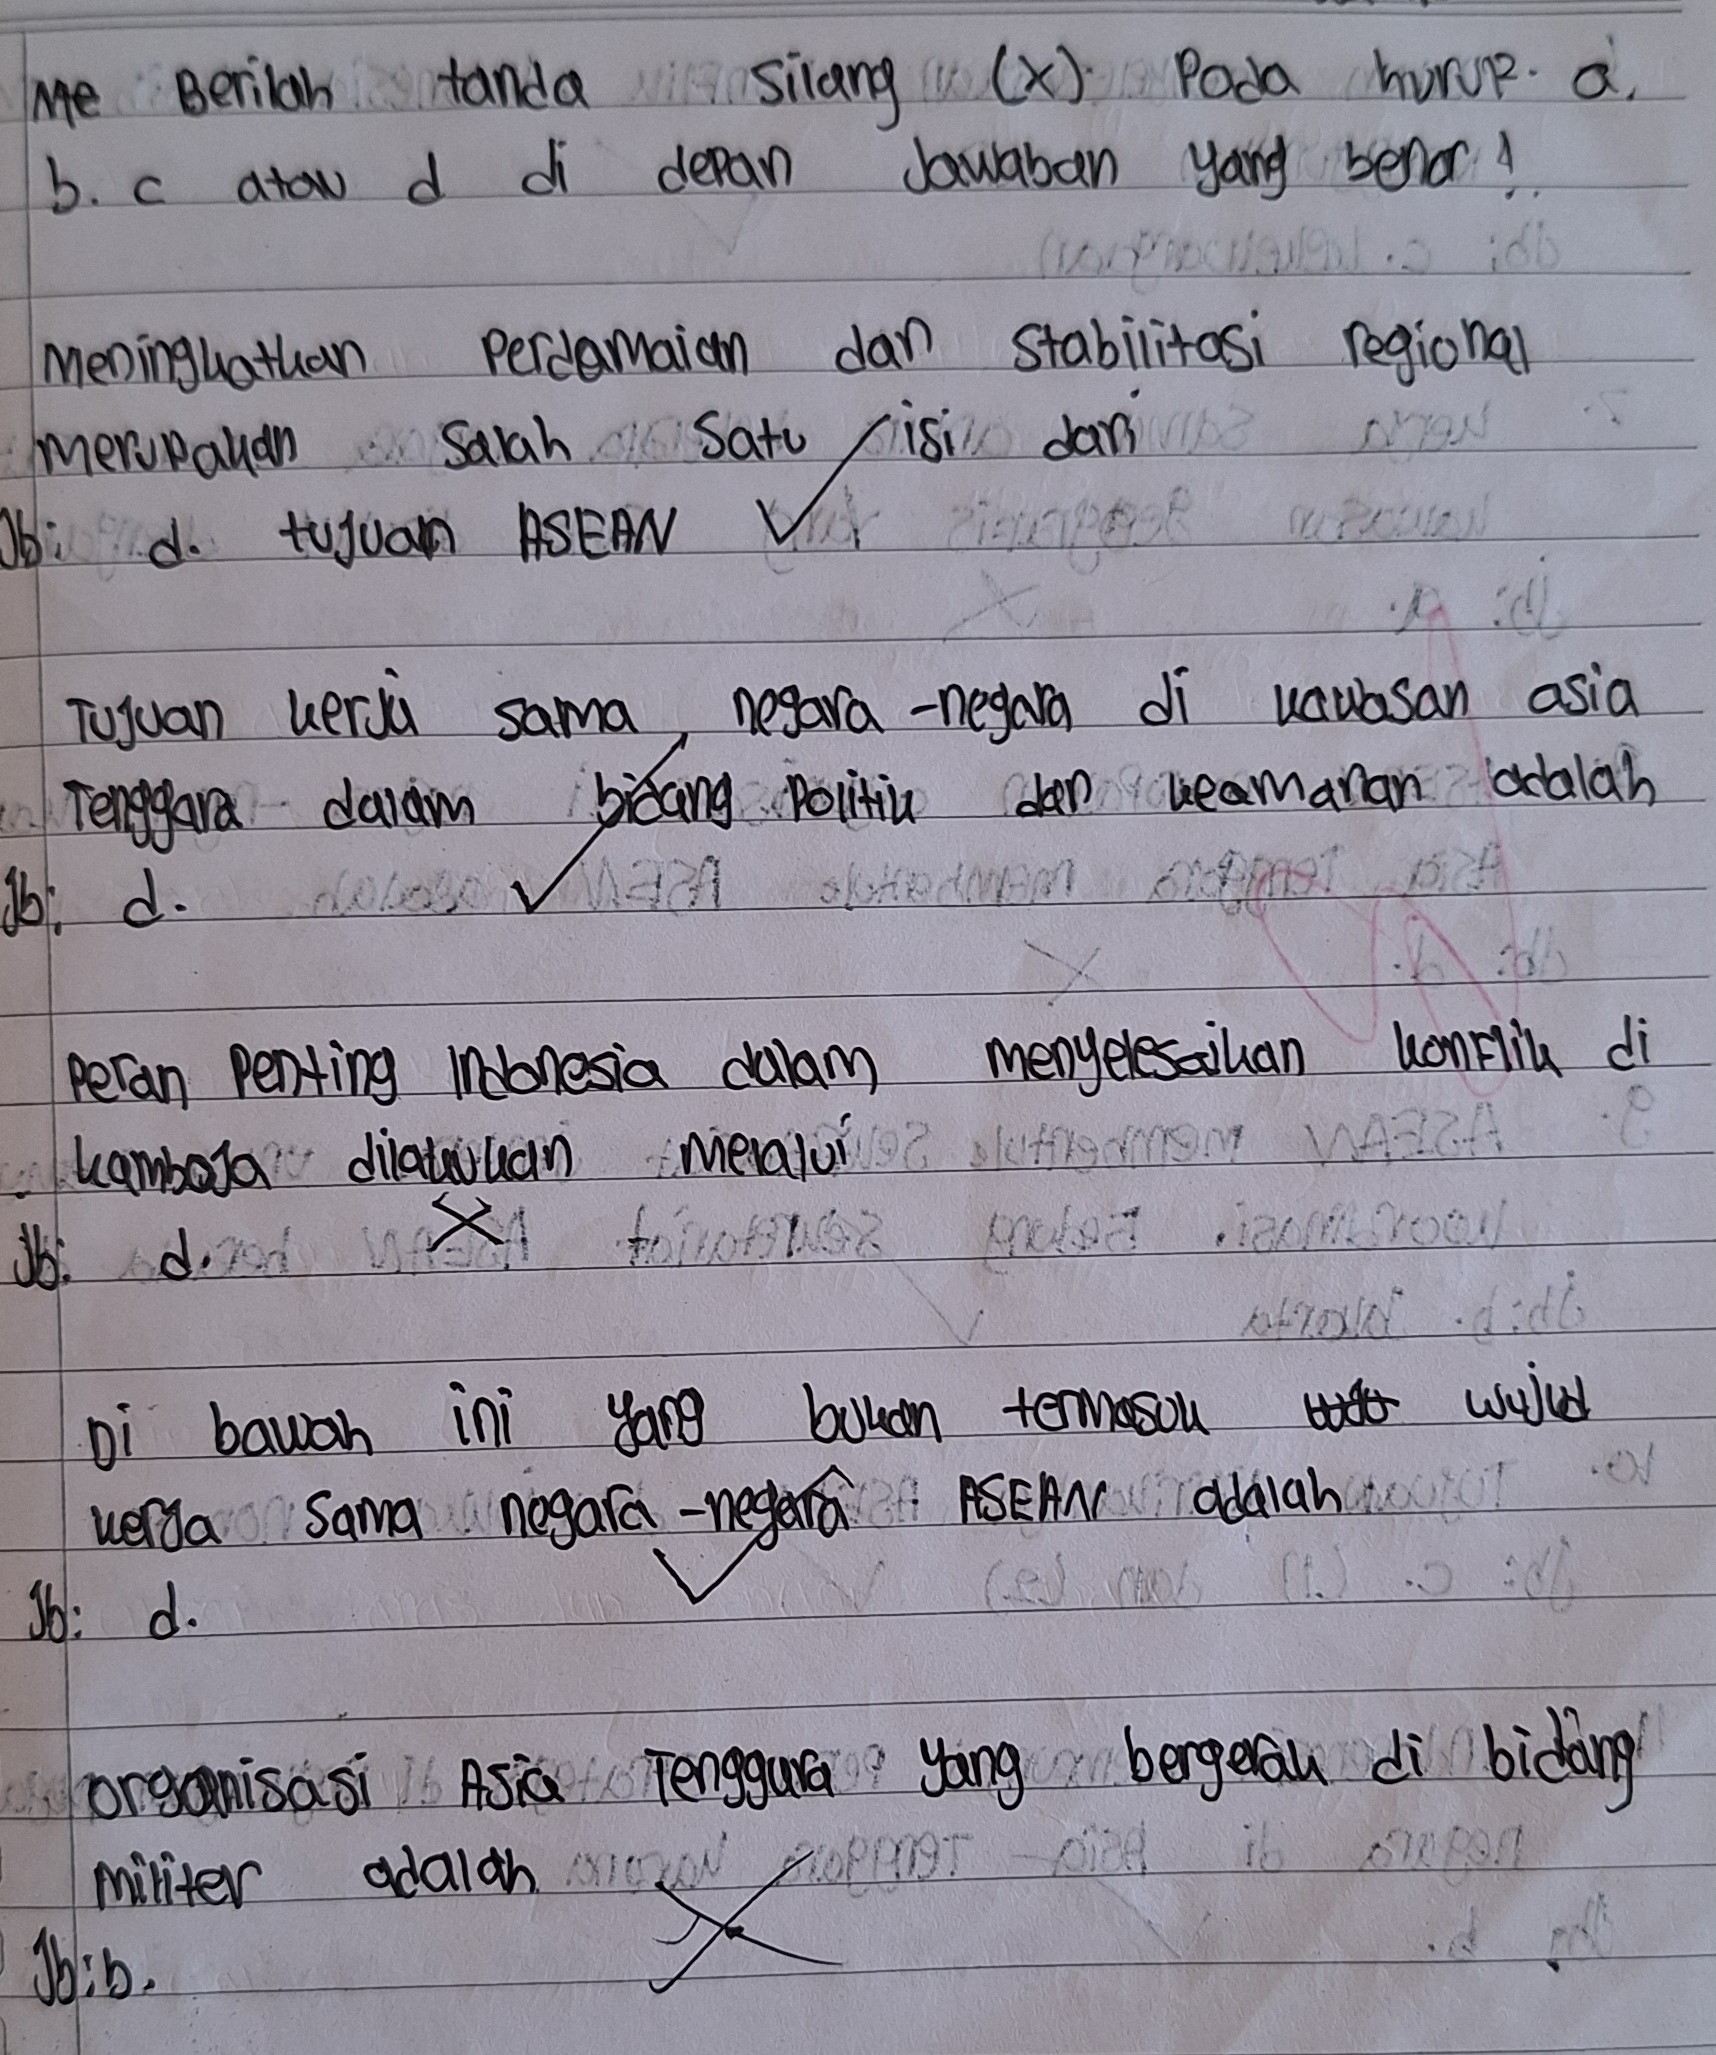 Me Berilah tanda silang (x) Pada hurup. a.
b. c atau d di depan Jawaban yang benar!
Meningkatkan Perdamaian dan stabilitasi regional
merupakan salah satu isi dari
Jb: d. tujuan ASEAN
Tujuan kerja sama negara-negara di kawasan asia
Tenggara dalam bidang Politik dan keamanan adalah
Jb: d.
Peran Penting Indonesia dalam menyelesaikan konflik di
kamboja dilakukan melalui
Jb: d.
Di bawah ini yang bukan termasuk wujud
kerja sama negara-negara ASEAN adalah
Jb: d.
organisasi Asia Tenggara yang bergerak di bidang
militer adalah
Jb: b.